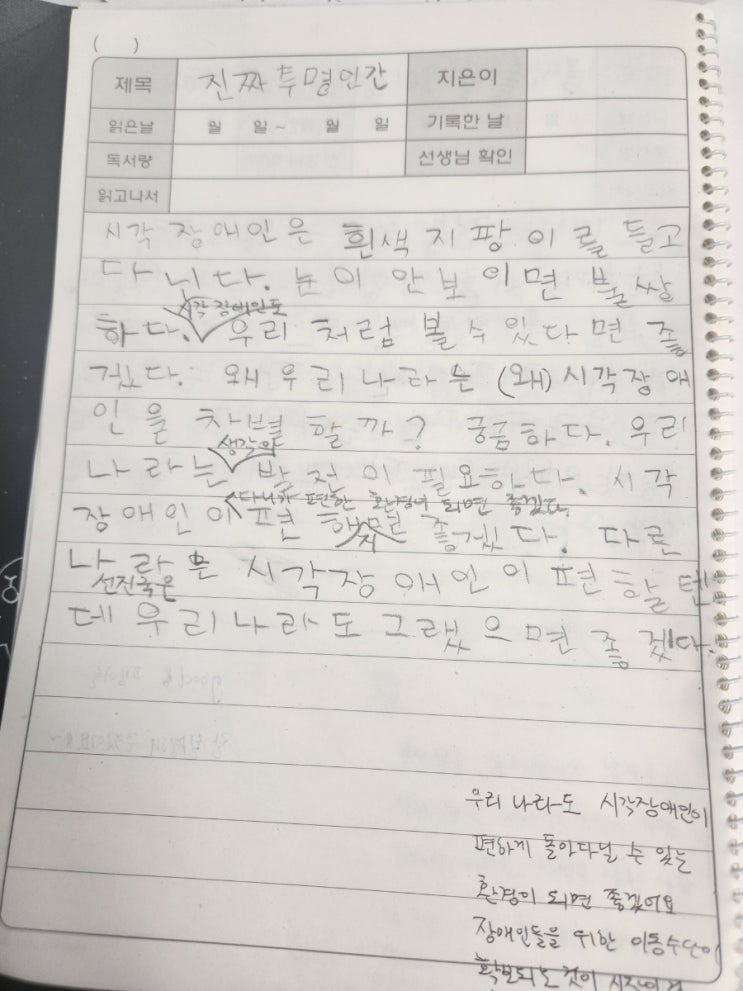 ( )
제목 진짜 투명인간 지은이
읽은날 월 일 ~ 월 일 기록한 날
독서량 선생님 확인
읽고나서
시각 장애인은 흰색 지팡이를 들고
다닌다. 눈이 안보이면 불쌍
시각장애인도
하다. 우리 처럼 볼 수 있다면 좋
겠다. 왜 우리나라는 (왜) 시각장애
인을 차별 할까? 궁금하다. 우리
생각의
나라는 발전이 필요하다. 시각
다니기 편한 환경이 되면 좋겠다.
장애인이 편 해지면 좋겠다. 다른
나라는 시각장애인이 편할텐
선진국은
데 우리나라도 그랬으면 좋겠다.
우리 나라도 시각장애인이
편하게 돌아다닐 수 있는
환경이 되면 좋겠어요
장애인들을 위한 이동수단이
확보되는 것이